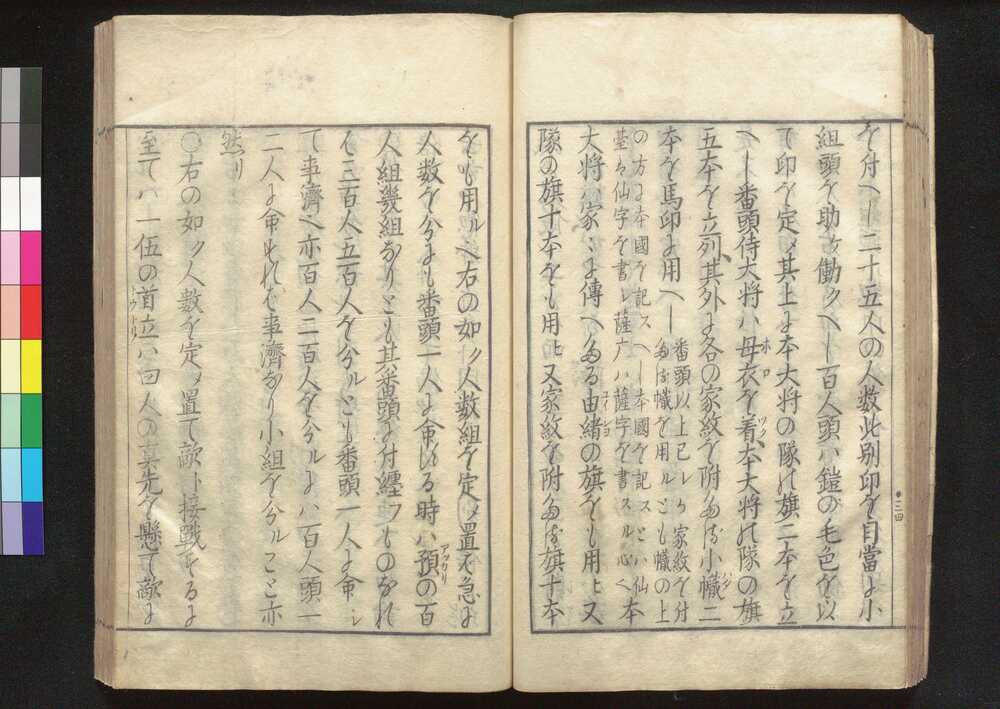 を付へし二十五人の人数此別印を目當に小
組頭を助ケ働クへし百人頭ハ鎧の毛色を以
て印を定メ其上に本大将の隊の旗二本を立
へし番頭侍大将ハ母衣を着、本大将の隊の旗
ホロ
ツケ
五本を立列、其外に各の家紋を附たる小幟二
本を馬印に用へし
番頭以上己レカ家紋を付
たる幟を用ルとも幟の上
の方に本國を記スへし本國を記スとハ仙
臺ハ仙字を書シ薩广ハ薩字を書スル心へ
本
大将ハ家〻に傳へたる由緒の旗をも用ヒ又
ユイシヨ
隊の旗十本をも用ヒ又家紋を附たる旗十本
二四
をも用ルへ右の如ク人数組を定メ置は急に
人数を分にも番頭一人に命する時ハ預の百
アツカリ
人組幾組なりとも其番頭に付纏フものなれ
は三百人五百人を分ルとも番頭一人に命シ
て事済へ亦百人二百人を分ルにハ百人頭一
二人に命すれは事済なり小組を分ルこと亦
然り
〇右の如ク人数を定メ置て敵ト接戦するに
至てハ一伍の首立ハ四人の真先を懸て敵に